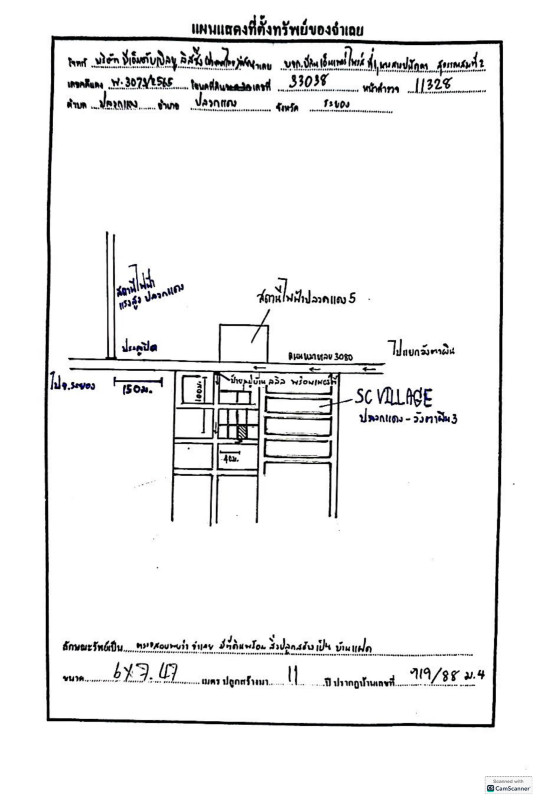 แผนแสดงที่ตั้งทรัพย์ของจำเลย
โจทก์ บริษัท จำเลย บจก.
เลขคดีแดง ผบ.3073/2565 โฉนดที่ดินเลขที่ 33038 หน้าสำรวจ 11328
ตำบล ปลวกแดง อำเภอ ปลวกแดง จังหวัด ระยอง
สถานีไฟฟ้า
แรงสูง ปลวกแดง
สถานีไฟฟ้าปลวกแดง 5
ประตูปิด
ถนนหมายเลข 3080
ไปแยกวังตาผิน
ไป จ.ระยอง
150 ม.
100 ม.
ป้ายหมู่บ้าน
SC VILLAGE
ปลวกแดง - วังตาผิน 3
40ม.
ลักษณะทรัพย์เป็น ตรวจสอบพบว่า จำเลย มีที่ดินพร้อม สิ่งปลูกสร้างเป็น บ้านแฝด
ขนาด 6x7.47 เมตร ปลูกสร้างมา 11 ปี ปรากฏบ้านเลขที่ 719/88 ม.4
Scanned with
CamScanner